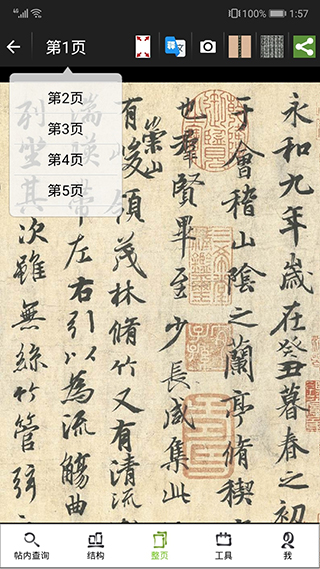 4G 1:57
第1页
第2页
第3页
第4页
第5页
永和九年歲在癸丑暮春之初
于會稽山陰之蘭亭脩稧
也羣賢畢至少長咸集此
有崇山峻領茂林脩竹又有清流
湍暎帶左右引以為流觴曲
列坐其次雖無絲竹管弦
帖内查询
结构
整页
工具
我